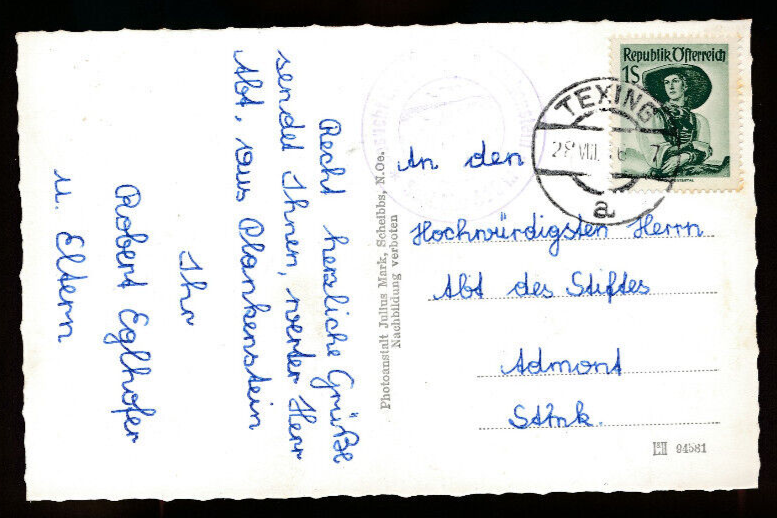 Recht herzliche Grüße
sendet Ihnen, werter Herr
Abt, aus Plankenstein
Ihr
Robert Eglhofer
u. Eltern
Photoanstalt Julius Mark, Scheibbs, N.Oe.
Nachbildung verboten
Republik Österreich
1S
TEXING
28 VIII. 7
a
An den
Hochwürdigsten Herrn
Abt des Stiftes
Admont
Stmk.
94581